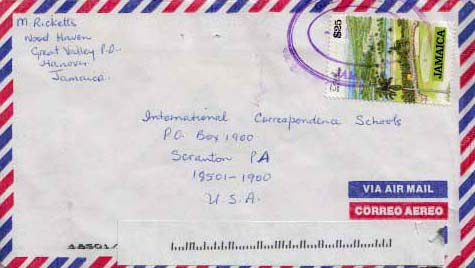 M. Ricketts
Wood Haven
Great Valley P.O.
Hanover
Jamaica.
$25
JAMAICA
International Correspondence Schools
P.O. Box 1900
Scranton PA
18501-1900
U.S.A.
VIA AIR MAIL
CORREO AEREO
18501/